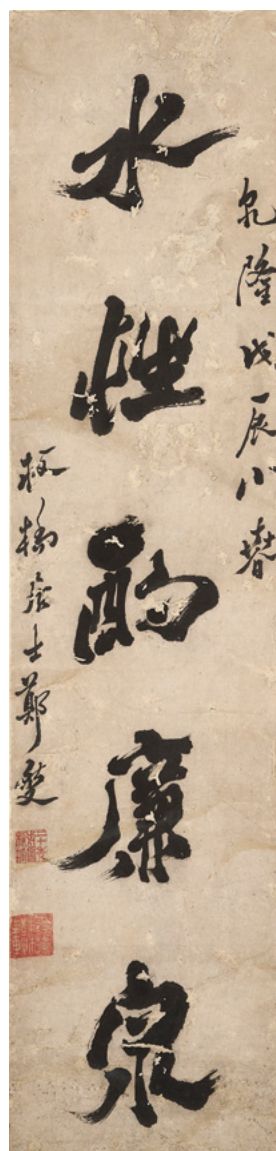 乾隆戊辰小春
水性酌廉泉
板橋居士鄭燮